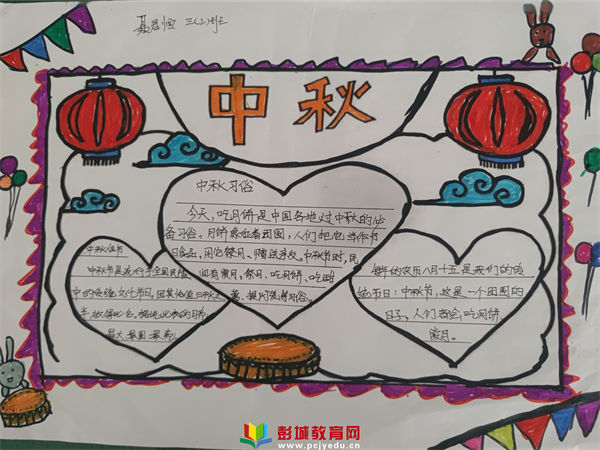 三(2)班
中秋
中秋习俗
今天,吃月饼是中国各地过中秋的必
备习俗。月饼象征着团圆,人们把它当作节
日食品,用它祭月、赠送亲友。中秋节时,民
间有赏月、祭月、吃月饼、
中秋佳节
中秋节是流行于全国民族
中的传统文化节日,因其恰值三秋之
半,故得此名。
每年的农历八月十五是我们的传
统节日:中秋节,这是一个团圆的
日子,人们都会吃月饼、
赏月。
彭城教育网
www.pcjyedu.cn